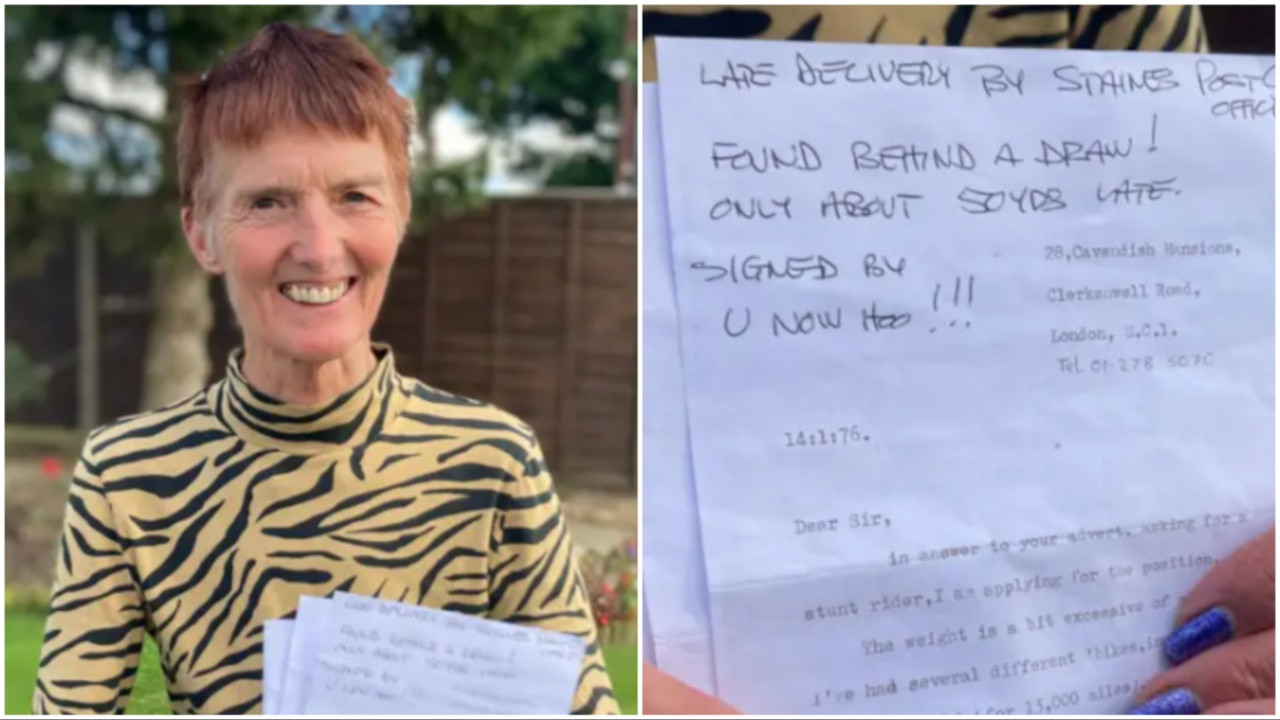 LATE DELIVERY BY STAINES POST
OFFIC
FOUND BEHIND A DRAW!
ONLY ABOUT 50YDS LATE.
SIGNED BY
U NOW HOO !!!
28,Cavendish Mansions,
Clerkenwell Road,
London, E.C.1.
Tel. 01-278 5070
14:1:76.
Dear Sir,
in answer to your advert, asking for a
stunt rider,I am applying for the position.
The weight is a bit excessive of
i've had several different 'bikes,
for 15,000 miles)